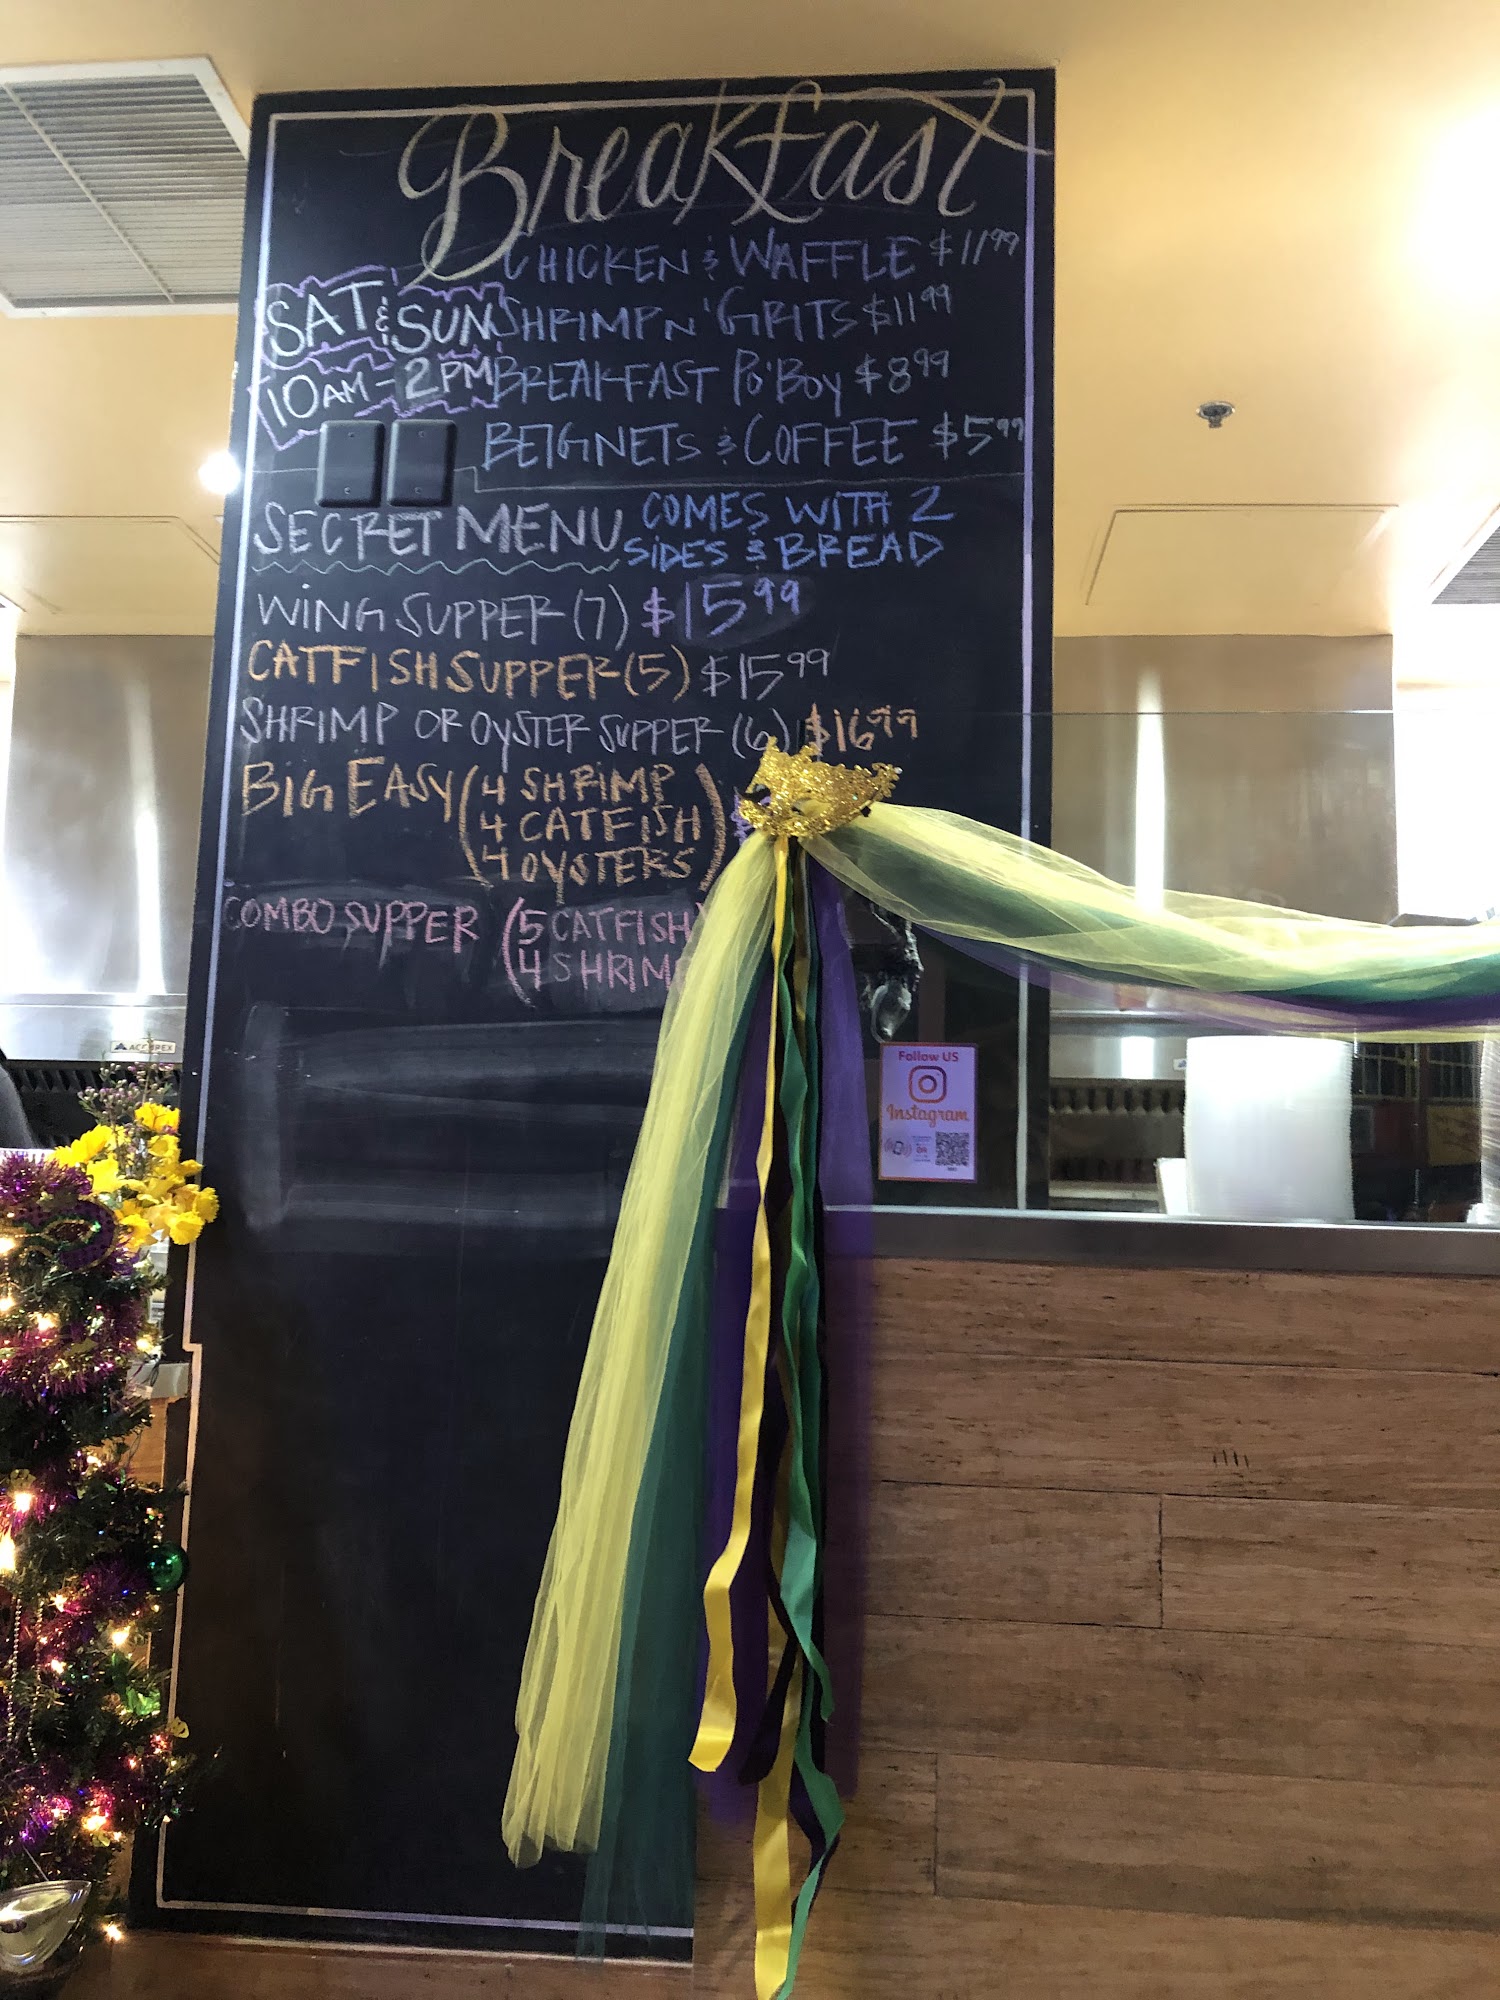 Breakfast
CHICKEN & WAFFLE $11.99
SAT & SUN
10AM - 2PM
SHRIMP N' GRITS $11.99
BREAKFAST PO'BOY $8.99
BEIGNETS & COFFEE $5.99
SECRET MENU
COMES WITH 2
SIDES & BREAD
WING SUPPER (7) $15.99
CATFISH SUPPER (5) $15.99
SHRIMP OR OYSTER SUPPER (6) $16.99
BIG EASY (4 SHRIMP
4 CATFISH
4 OYSTERS)
COMBO SUPPER (5 CATFISH
4 SHRIMP
Follow US
Instagram